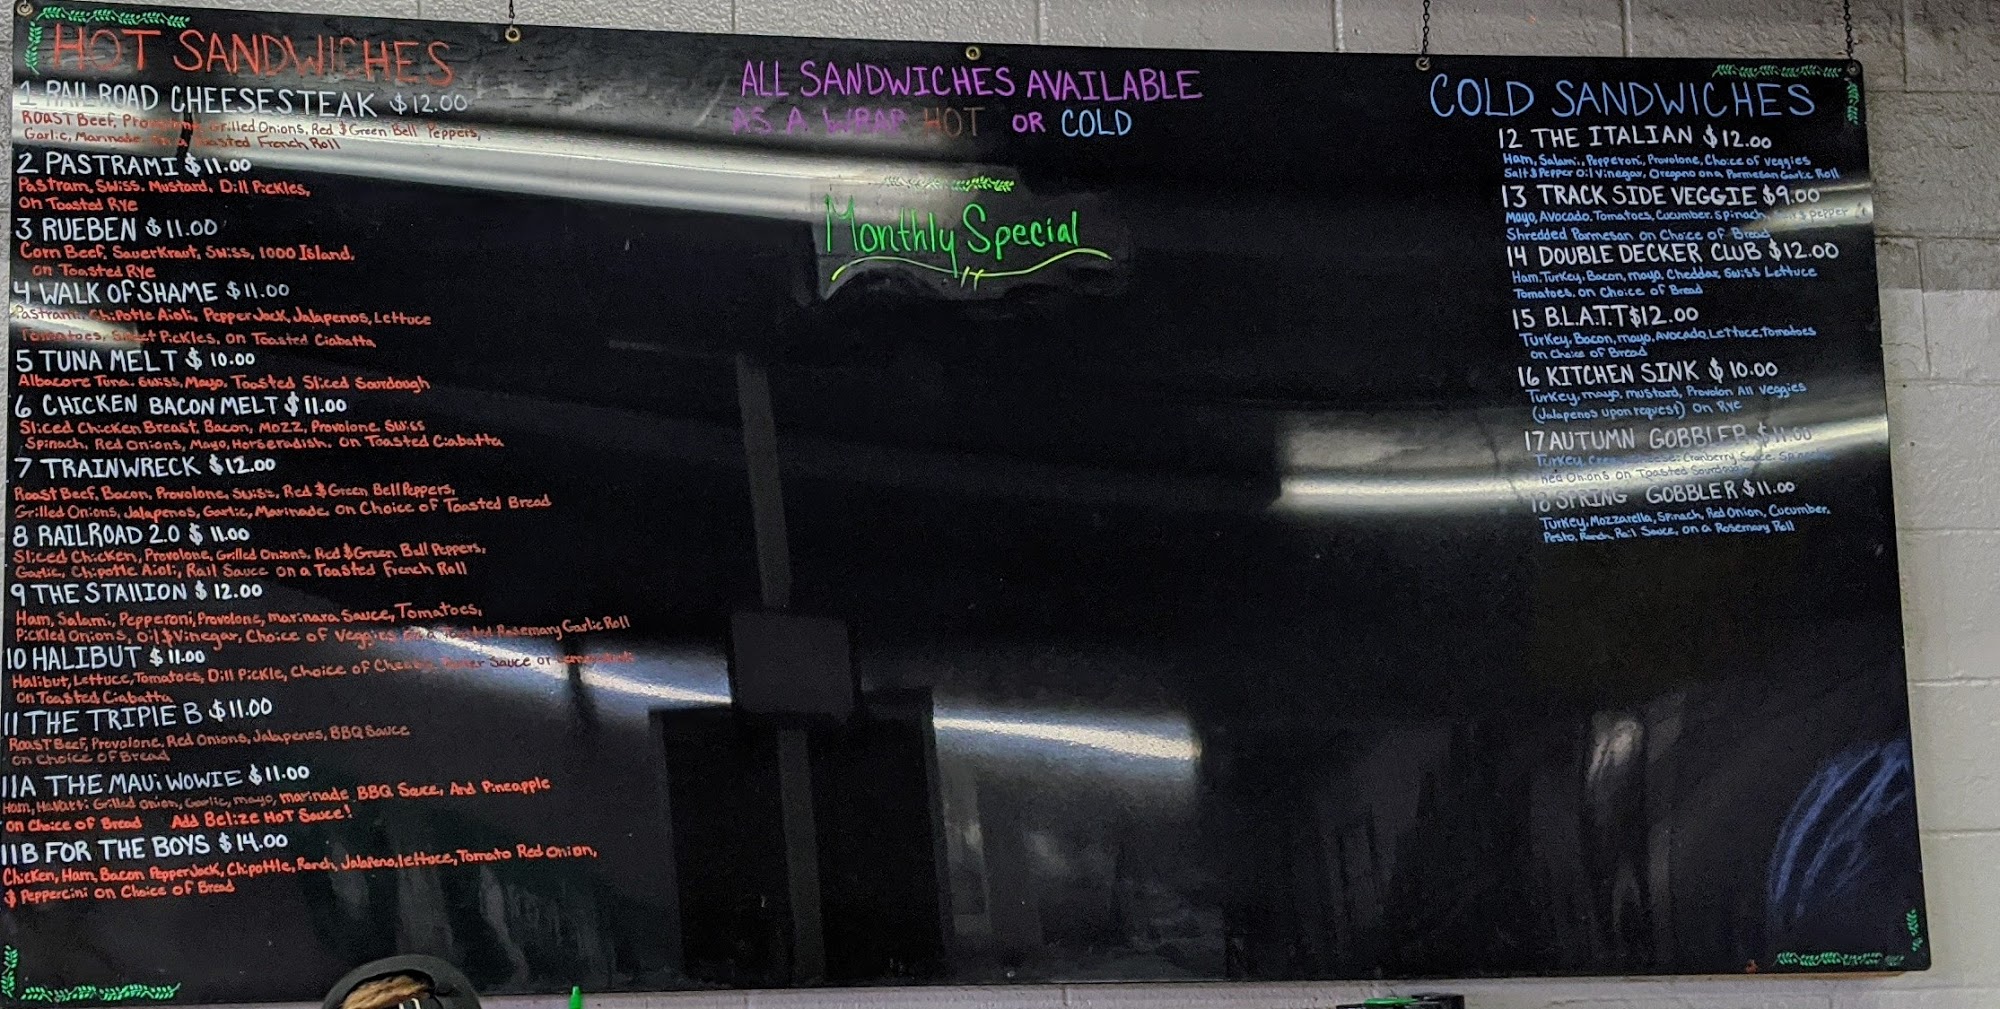 HOT SANDWICHES
1 RAILROAD CHEESESTEAK $12.00
ROAST Beef, Provolone, Grilled Onions, Red & Green Bell Peppers,
Garlic, Marinade on a Toasted French Roll
2 PASTRAMI $11.00
Pastrami, Swiss, Mustard, Dill Pickles,
on Toasted Rye
3 RUEBEN $11.00
Corn Beef, SauerKraut, Swiss, 1000 Island,
on Toasted Rye
4 WALK OF SHAME $11.00
Pastrami, Chipotle Aioli, Pepper Jack, Jalapenos, Lettuce
Tomatoes, Sweet Pickles, on Toasted Ciabatta
5 TUNA MELT $10.00
Albacore Tuna, Swiss, Mayo, Toasted Sliced Sourdough
6 CHICKEN BACON MELT $11.00
Sliced Chicken Breast, Bacon, Mozz, Provolone Swiss
Spinach, Red Onions, Mayo, Horseradish, on Toasted Ciabatta
7 TRAINWRECK $12.00
Roast Beef, Bacon, Provolone, Swiss, Red & Green Bell Peppers,
Grilled Onions, Jalapenos, Garlic, Marinade, on Choice of Toasted Bread
8 RAILROAD 2.0 $11.00
Sliced Chicken, Provolone, Grilled Onions, Red & Green Bell Peppers,
Garlic, Chipotle Aioli, Rail Sauce on a Toasted French Roll
9 THE STAllION $12.00
Ham, Salami, Pepperoni, Provolone, Marinara Sauce, Tomatoes,
Pickled Onions, Oil & Vinegar, Choice of Veggies on a Toasted Rosemary Garlic Roll
10 HALIBUT $11.00
Halibut, Lettuce, Tomatoes, Dill Pickle, Choice of Cheese, Sauce or
on Toasted Ciabatta
11 THE TRIPlE B $11.00
Roast Beef, Provolone, Red Onions, Jalapenos, BBQ Sauce
on Choice of Bread
11A THE MAUi WOWIE $11.00
Ham, Havarti Grilled Onion, Garlic, mayo, marinade BBQ Sauce, And Pineapple
on Choice of Bread Add Belize HoT Sauce!
11B FOR THE BOYS $14.00
Chicken, Ham, Bacon PepperJack, Chipottle, Ranch, Jalapeno, lettuce, Tomato Red Onion,
& Peppercini on Choice of Bread
ALL SANDWICHES AVAILABLE
AS A WRAP HOT OR COLD
Monthly Special
COLD SANDWICHES
12 THE ITALIAN $12.00
Ham, Salami, Pepperoni, Provolone, Choice of veggies
Salt & Pepper Oil Vinegar, Oregano on a Parmesan Garlic Roll
13 TRACK SIDE VEGGIE $9.00
Mayo, Avocado, Tomatoes, Cucumber, Spinach, pepper
Shredded Parmesan on Choice of Bread
14 DOUBLE DECKER CLUB $12.00
Ham, Turkey, Bacon, mayo, Cheddar, Swiss Lettuce
Tomatoes, on Choice of Bread
15 B.L.A.T.T $12.00
Turkey, Bacon, mayo, Avocado, Lettuce, Tomatoes
on Choice of Bread
16 KITCHEN SINK $10.00
Turkey, mayo, mustard, Provolon All Veggies
(Jalapenos upon request) on Rye
17 AUTUMN GOBBLER $11.00
Turkey, Cranberry Sauce,
Red Onions on Toasted Sourdough
18 SPRING GOBBLER $11.00
Turkey, Mozzarella, Spinach, Red Onion, Cucumber,
Pesto, Ranch, Rail Sauce, on a Rosemary Roll